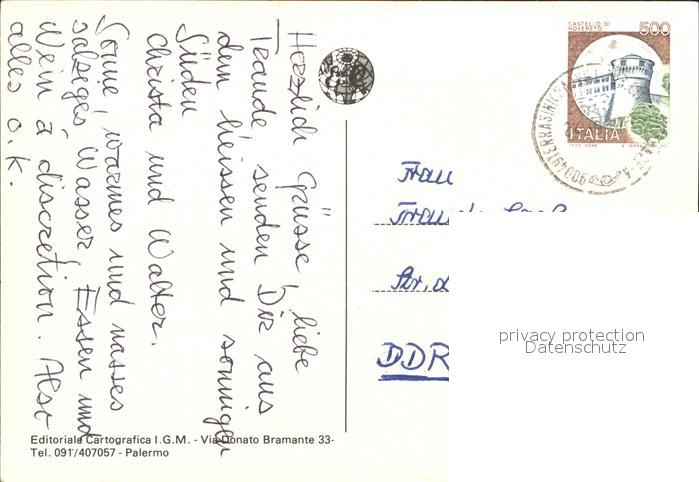 Herzlich Grüsse, liebe
Traude, senden Dir aus
dem heissen und sonnigen
Süden
Christa und Walter.
Sonne, warmes und nasses
salziges Wasser, Essen und
Wein à discretion. Also
alles o.k.
CASTELLO DI
ROVERETO
500
ITALIA
90049 TERRASINI
Frau
DDR
privacy protection
Datenschutz
Editoriale Cartografica I.G.M. - Via Donato Bramante 33-
Tel. 091/407057 - Palermo